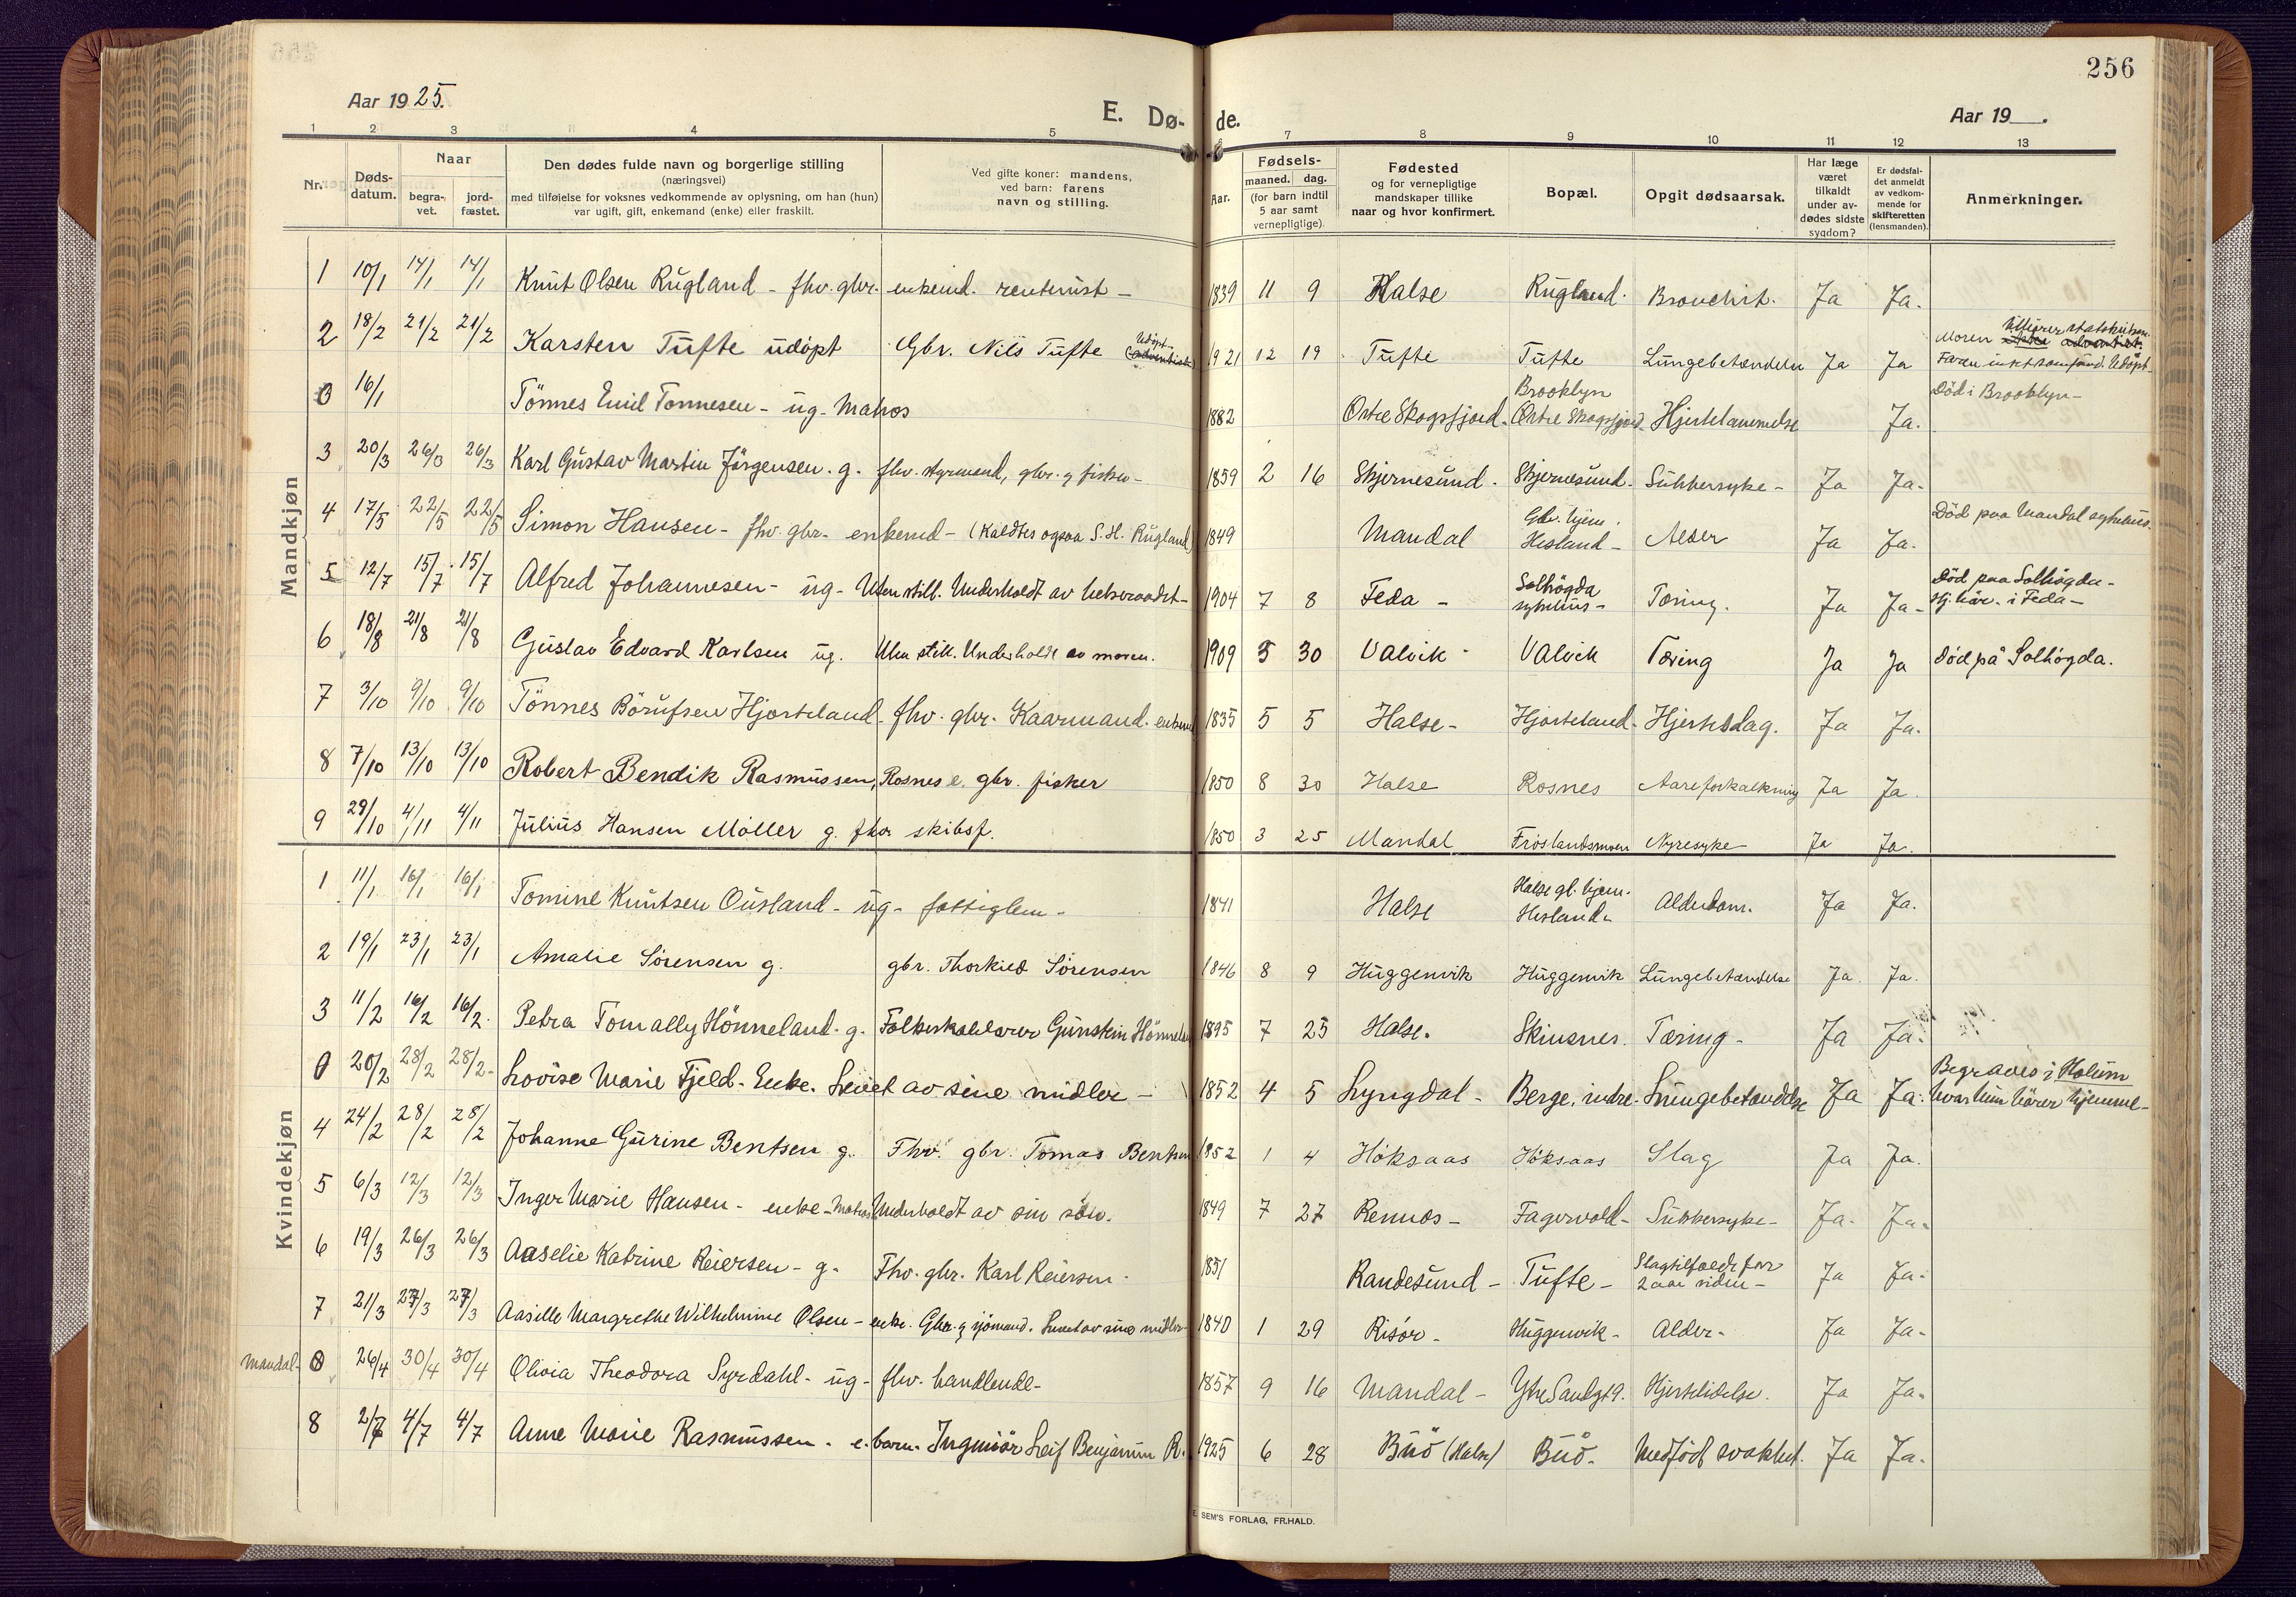 256
Aar 1925.
E. Dø- de.
Aar 19__.
1 2 3 4 5 6 7 8 9 10 11 12 13
Nr.
Døds-
datum.
Naar
begra-
vet.
jord-
fæstet.
Den dødes fulde navn og borgerlige stilling
(næringsvei)
med tilføielse for voksnes vedkommende av oplysning, om han (hun)
var ugift, gift, enkemand (enke) eller fraskilt.
Ved gifte koner: mandens,
ved barn: farens
navn og stilling.
Aar.
Fødsels-
maaned. dag.
(for barn indtil
5 aar samt
vernepligtige).
Fødested
og for vernepligtige
mandskaper tillike
naar og hvor konfirmert.
Bopæl.
Opgit dødsaarsak.
Har læge
været
tilkaldt
under av-
dødes sidste
sygdom?
Er dødsfal-
det anmeldt
av vedkom-
mende for
skifteretten
(lensmanden).
Anmerkninger.
Mandkjøn
1 10/1 14/1 14/1 Knut Olsen Rugland - fhv. gbr. enkemd. rentenist - 1839 11 9 Halse Rugland. Bronchit. Ja Ja.
2 18/2 21/2 21/2 Karsten Tufte udöpt Gbr. Nils Tufte Udöpt 1921 12 19 Tufte Tufte Lungebetændelse Ja Ja Moren tilhører statskirken.
0 16/1 Tönnes Emil Tonnesen - ug. Matros 1882 Ostre Skogsfjord. Brooklyn Ostre Skogsfjord Hjertelammelse Ja. Död i Brooklyn -
3 20/3 26/3 26/3 Karl Gustav Martin Jörgensen. g. fhv. styrmand, gbr. og fisker - 1859 2 16 Skjernesund. Skjernesund. Sukkersyke - Ja Ja.
4 17/5 22/5 22/5 Simon Hansen - fhv. gbr. enkemd - (Kaldtes ogsaa S. H. Rugland) 1849 Mandal Gbr. hjem. Hesland - Alder Ja Ja. Död paa Mandal sykehus.
5 12/7 15/7 15/7 Alfred Johannesen - ug - Uten still. Underholdt av helseraadet - 1904 7 8 Feda - Solhögda sykehus - Tæring. Ja Ja - Död paa Solhögda - Hj.hör. i Feda -
6 18/8 21/8 21/8 Gustav Edvard Karlsen ug. Uten still. Underholdt av moren. 1909 5 30 Valvik Valvik Tæring Ja Ja Död på Solhögda.
7 3/10 9/10 9/10 Tönnes Börufsen Hjorteland - fhv. gbr. Kaarmand. enkemd 1835 5 5 Halse - Hjorteland. Hjerteslag. Ja Ja.
8 7/10 13/10 13/10 Robert Bendik Rasmussen, Rosnes e. gbr. fisker 1850 8 30 Halse Rosnes Aareforkalkning Ja Ja.
9 29/10 4/11 4/11 Julius Hansen Möller g. fhv skibsf. 1850 3 25 Mandal Fröslandsmoen Nyresyke Ja Ja.
Kvindekjøn
1 11/1 16/1 16/1 Tomine Knutsen Ousland - ug - fattiglem - 1841 Halse Halse gl. hjem. Hesland. Alderdom. Ja Ja.
2 19/1 23/1 23/1 Amalie Sörensen g. gbr. Thorkild Sörensen 1846 8 9 Huggenvik Huggenvik Lungebetændelse Ja Ja.
3 11/2 16/2 16/2 Petra Tomally Hönneland. g. Folkeskolelærer Gunstein Hönneland 1895 7 25 Halse. Skinsnes. Tæring - Ja Ja.
0 20/2 28/2 28/2 Lovise Marie Fjeld - Enke. Levet av sine midler - 1852 4 5 Lyngdal - Berge, indre. Lungebetændelse Ja Ja. Begraves i Holum hvor hun hörer hjemme -
4 24/2 28/2 28/2 Johanne Gurine Bentsen g. Fhv. gbr. Tomas Bentsen 1852 1 4 Höksaas Höksaas Slag Ja Ja.
5 6/3 12/3 12/3 Inger Marie Hansen - enke - Matros Underholdt av sin sön. 1849 7 27 Rennos - Fagervold - Sukkersyke - Ja. Ja.
6 19/3 26/3 26/3 Aaselie Katrine Reiersen - g. Fhv. gbr. Karl Reiersen. 1851 Randesund - Tufte - Slagtilfælde for 2 aar siden - Ja Ja.
7 21/3 27/3 27/3 Aasille Margrethe Wilhelmine Olsen - enke. Gbr. og sjömand. Levet av sine midler - 1840 1 29 Risör - Huggenvik - Alder - Ja Ja -
Mandal 0 26/4 30/4 30/4 Olivia Theodora Syrdahl - ug - fhv. handlende - 1857 9 16 Mandal - Ytre Sandgt 9. Hjertelidelse. Ja Ja.
8 2/7 4/7 4/7 Anne Marie Rasmussen. e. barn. Ingeniör Leif Benjamin R. 1925 6 28 Buö (Halse) Buö. Medfödt svakhet. Ja Ja.
E. SEM'S FORLAG, FR.HALD.